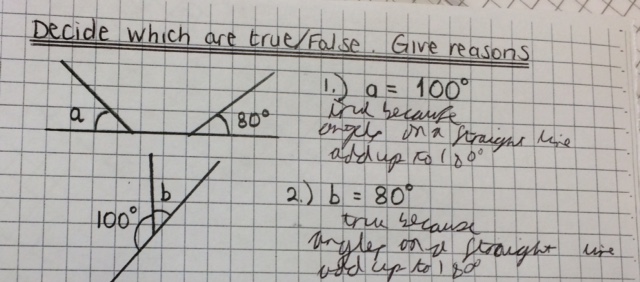 Decide which are true/False. Give reasons
a
80°
1.) a = 100°
true because
angels on a straight line
add up to 180°
100°
b
2.) b = 80°
true because
angles on a straight line
add up to 180°